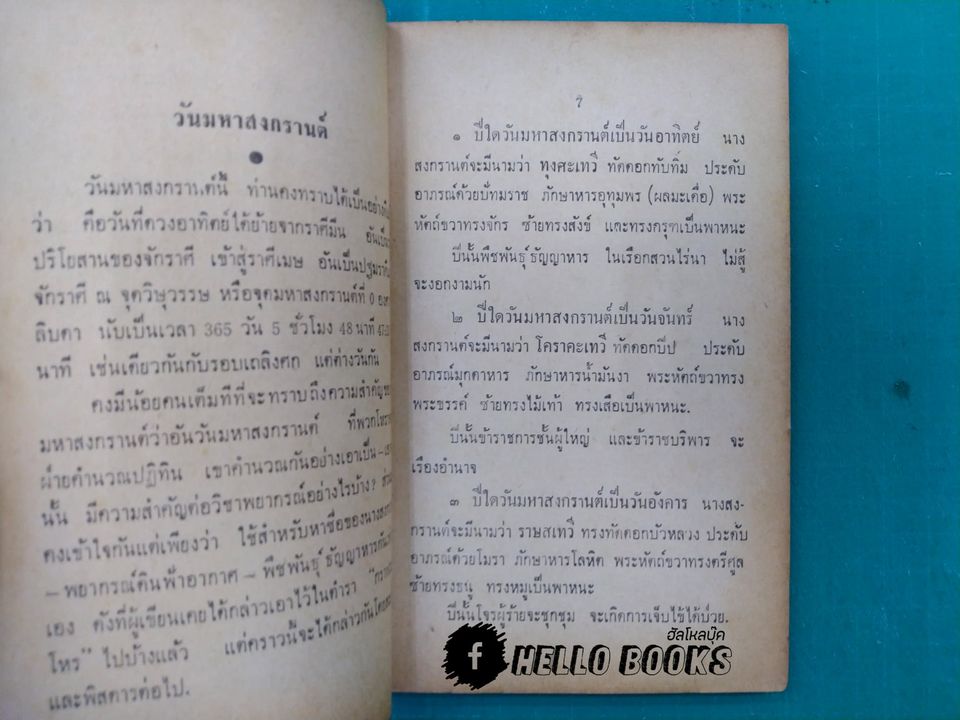 วันมหาสงกรานต์
วันมหาสงกรานต์นี้ ท่านคงทราบได้เป็นอย่าง
ว่า คือวันที่ดวงอาทิตย์ได้ย้ายจากราศีมีน
ปริโยสานของจักราศี เข้าสู่ราศีเมษ อันเป็นปฐม
จักราศี ณ จุดวิษุวรรษ หรือจุดมหาสงกรานต์ที่ 0
ลิบดา นับเป็นเวลา 365 วัน 5 ชั่วโมง 48 นาที
นาที เช่นเดียวกันกับรอบเถลิงศก แต่ต่างวันกัน
คงมีน้อยคนเต็มทีที่จะทราบถึงความสำคัญ
มหาสงกรานต์ว่าอันวันมหาสงกรานต์ ที่พวก
ฝ่ายคำนวณปฏิทิน เขาคำนวณกันอย่างเอาเป็น-
นั้น มีความสำคัญต่อวิชาพยากรณ์อย่างไรบ้าง?
คงเข้าใจกันแต่เพียงว่า ใช้สำหรับหาชื่อของนาง
-พยากรณ์ดินฟ้าอากาศ-พืชพันธุ์ธัญญาหาร
เอง ดังที่ผู้เขียนเคยได้กล่าวเอาไว้ในตำรา
โหร" ไปบ้างแล้ว แต่คราวนี้จะได้กล่าวกันโดย
และพิสดารต่อไป.
7
๑ ปีใดวันมหาสงกรานต์เป็นวันอาทิตย์ นาง
สงกรานต์จะมีนามว่า ทุงศะเทวี ทัดดอกทับทิ่ม ประดับ
อาภรณ์ด้วยปัทมราช ภักษาหารอุทุมพร (ผลมะเดื่อ) พระ
หัตถ์ขวาทรงจักร ซ้ายทรงสังข์ และทรงครุฑเป็นพาหนะ
ปีนั้นพืชพันธุ์ธัญญาหาร ในเรือกสวนไร่นา ไม่สู้
จะงอกงามนัก
๒ ปีใดวันมหาสงกรานต์เป็นวันจันทร์ นาง
สงกรานต์จะมีนามว่า โคราคะเทวี ทัดดอกปีป ประดับ
อาภรณ์มุกดาหาร ภักษาหารน้ำมันงา พระหัตถ์ขวาทรง
พระขรรค์ ซ้ายทรงไม้เท้า ทรงเสือเป็นพาหนะ.
ปีนั้นข้าราชการชั้นผู้ใหญ่ และข้าราชบริพาร จะ
เรืองอำนาจ
๓ ปีใดวันมหาสงกรานต์เป็นวันอังคาร นางสง-
กรานต์จะมีนามว่า ราษสเทวี ทรงทัดดอกบัวหลวง ประดับ
อาภรณ์ด้วยโมรา ภักษาหารโลหิต พระหัตถ์ขวาทรงตรีศูล
ซ้ายทรงธนู ทรงหมูเป็นพาหนะ
ปีนั้นโจรผู้ร้ายจะชุกชุม จะเกิดการเจ็บไข้ได้ป่วย.
ฮัลโหลบุ๊ค
f HELLO BOOKS